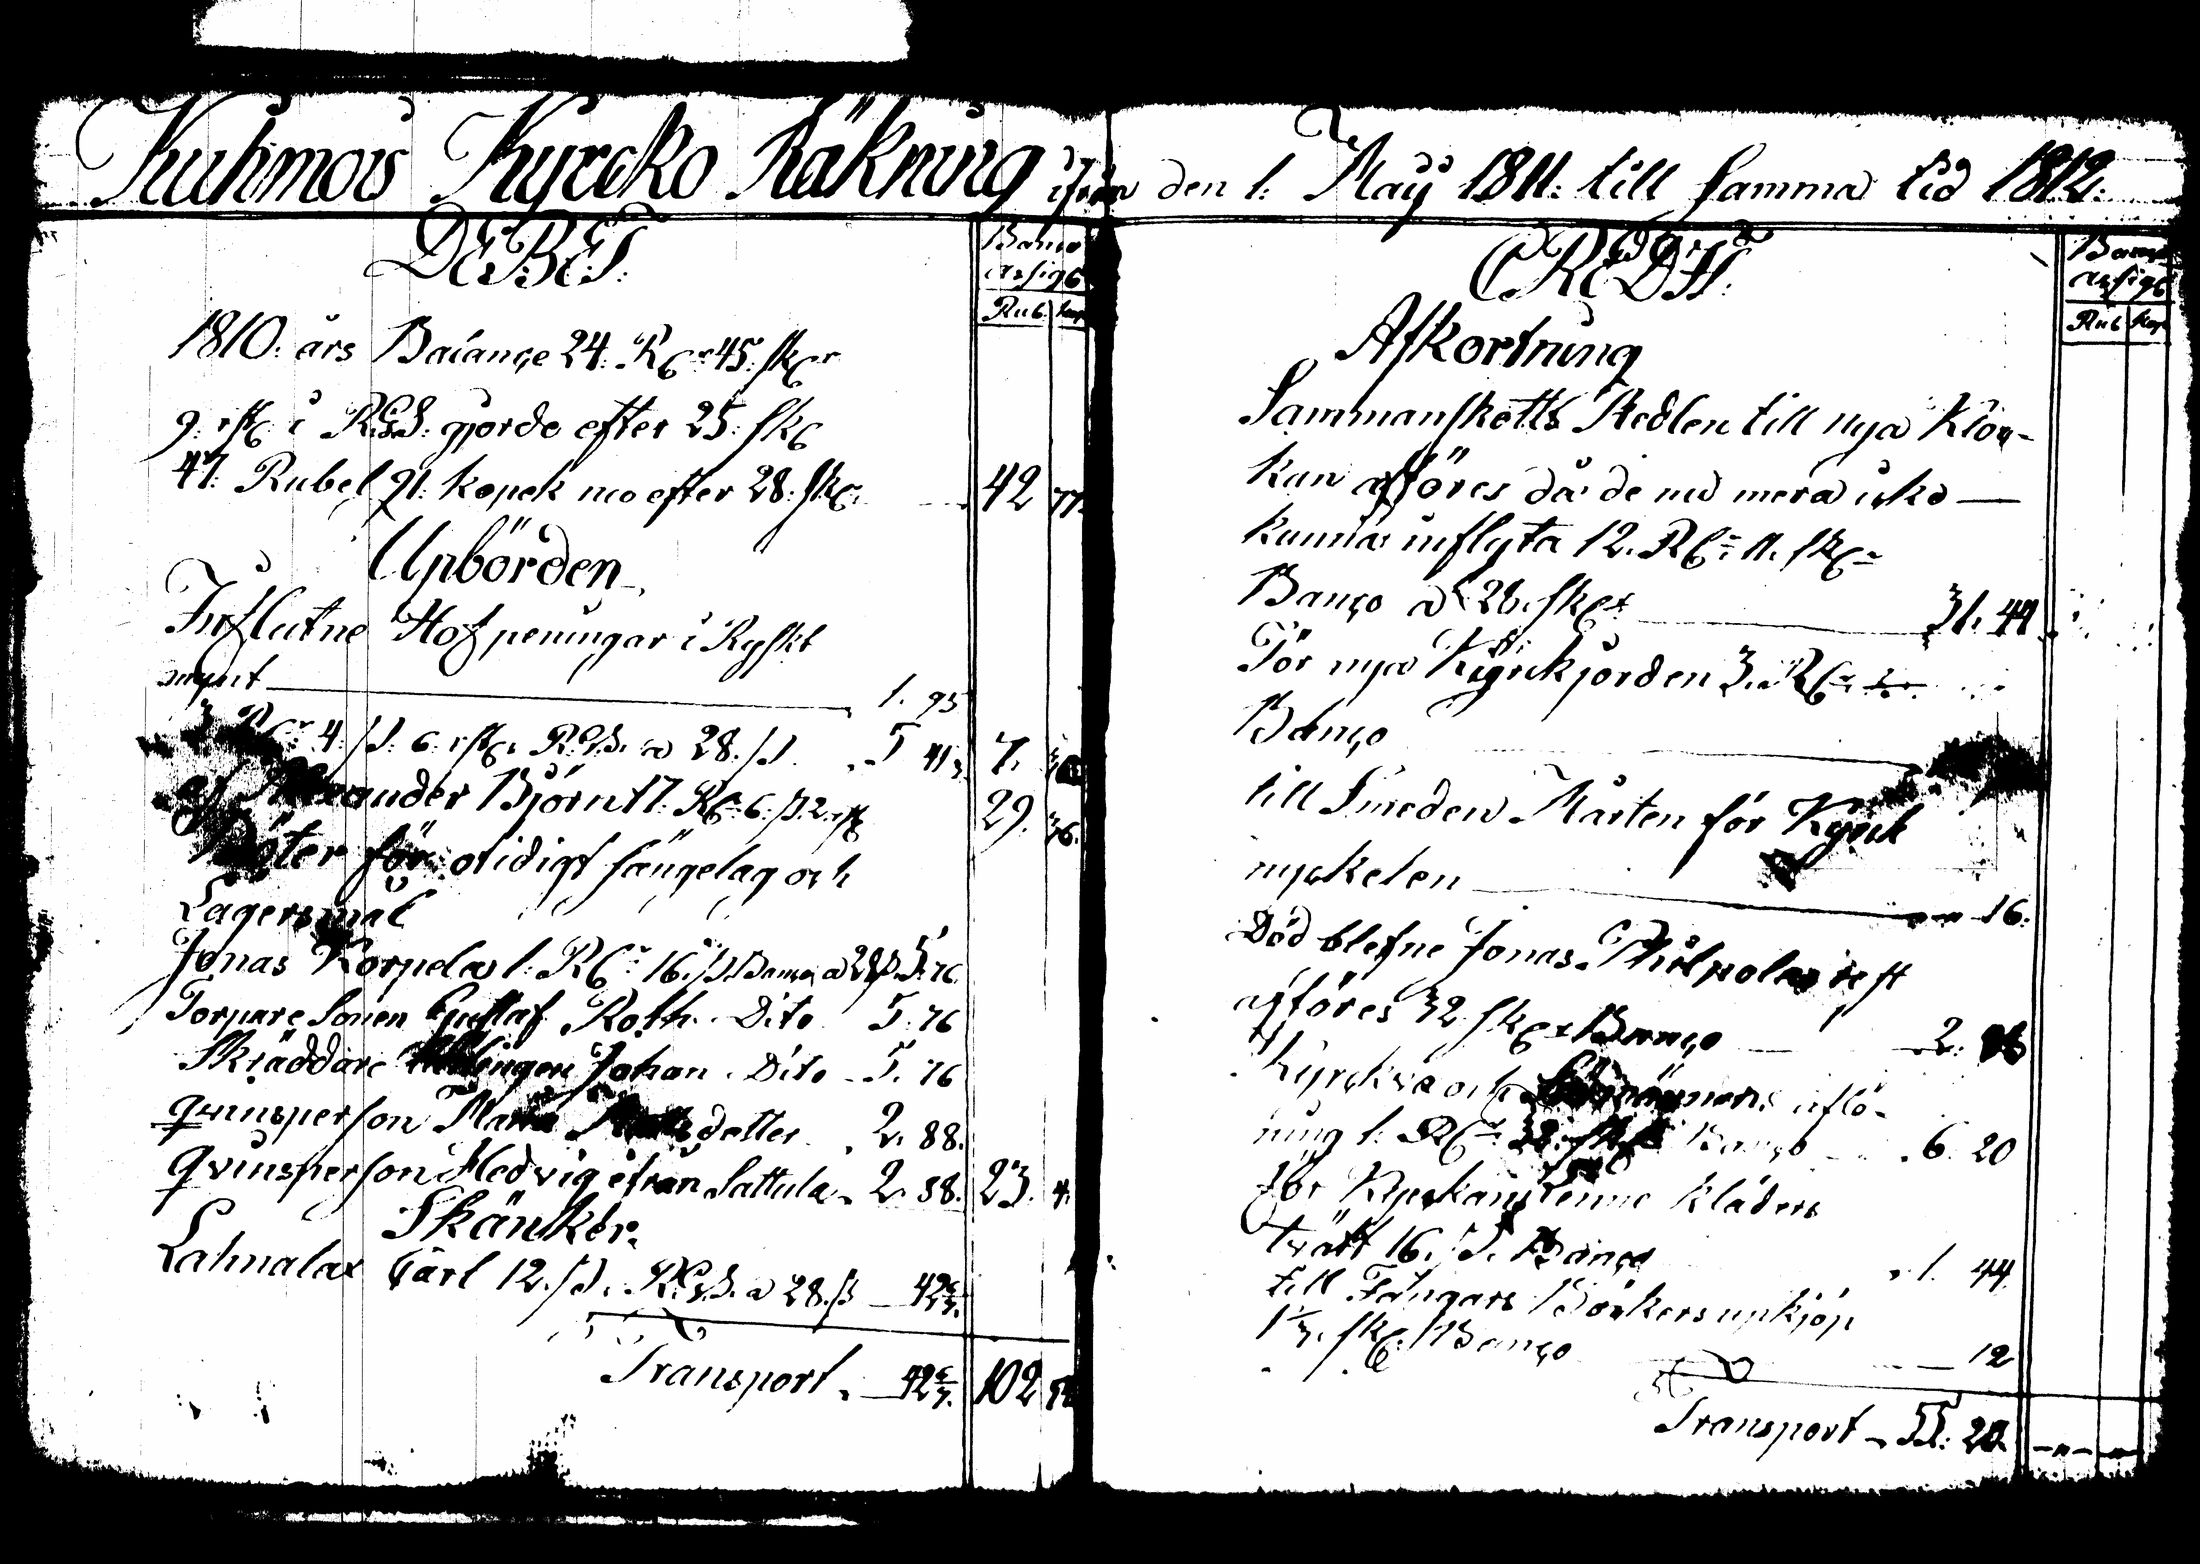 Kuhmois Kyrcko Räkning ifrån den 1: May 1811: till samma tid 1812:
DEBET:
Banco
assig
Rub kop
1810: års Balançe 24: RC: 45: skr
9: rst: i RGS: gjorde efter 25: sk
47: Rubel 91: kopek mo efter 28: sk 42 77
Upbörden
Influtne Hofpeningar i Ryskt
mynt 1. 95
3 RC: 4: sl: 6: rst: RGS. a 28. sl. 5 41 7. 36
af Alexander Björn 17: RC: 6: sl. 2: rst 29. 76.
Böter för otidigt sängelag och
Lagersmål
Jonas Korpela 1: RC: 16: sl. Banco a 28 sl. 5. 76
Torpare Sonen Gustaf Roth. Dito 5. 76
Skräddare Johan. Dito 5. 76
qvinsperson Maria Matsdotter 2. 88.
qvinsperson Hedvig ifrån Sattula 2. 88. 23. 4.
Skänker.
Lahnalax Carl 12. sl. RGS. a 28. sl 42 6/7.
Transport 42 6/7. 102
CREDIT:
Banco
assig
Rub kop
Afkortning
Sammanskotts Medlen till nya Kloc-
kan afföres då de nu mera icke
kunna inflyta 12. RC: 11. sk
Banço a 28. sk 31. 44
För nya Kyrckjorden 3. RC:
Banço
till Smeden Mårten för Kyrck
nyckelen 16.
Död blefne Jonas rest
afföres 32 sk Banço 2.
Kyrckv: och aflö-
ning 1: RC: 32: sk Banço 6. 20
för Kyrckans Linne kläders
tvätt 16. sl. Banço 1. 44
till Fångars Böckers upkjöp
1 1/3. sk Banço 12
Transport 55: 20